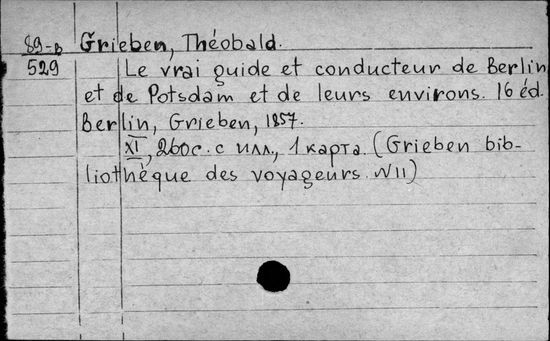 89-В Grieben, Théobald.
529 Le vrai guide et conducteur de Berlin
et de Potsdam et de leurs environs. 16 éd.
Berlin, Grieben, 1857.
XI, 260с. с илл., 1 карта. (Grieben bib-
liothèque des voyageurs. N 11)